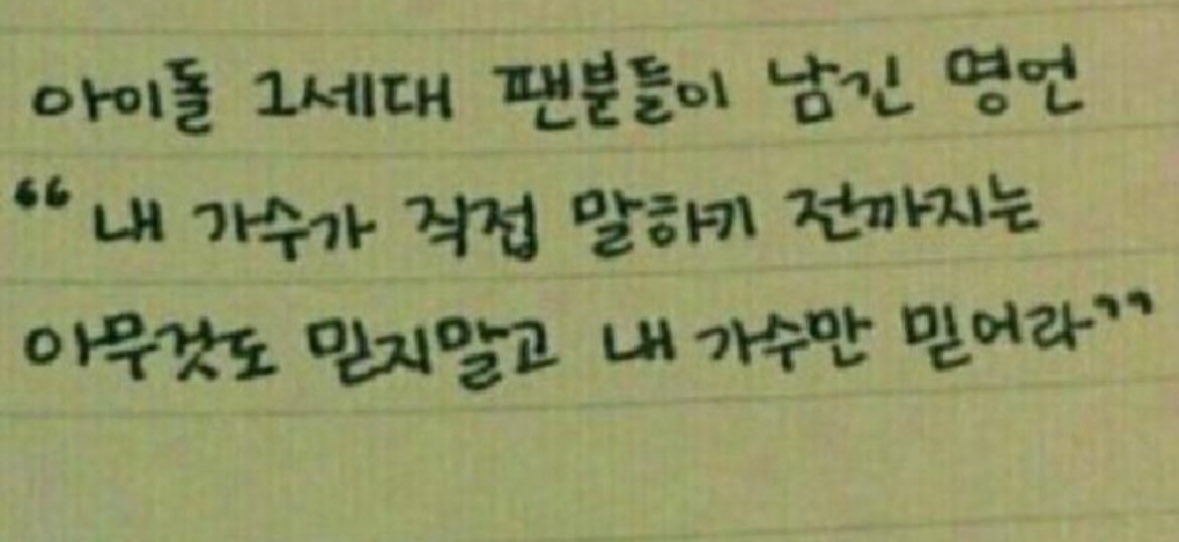 아이돌 1세대 팬분들이 남긴 명언
“ 내 가수가 직접 말하기 전까지는
아무것도 믿지말고 내 가수만 믿어라”